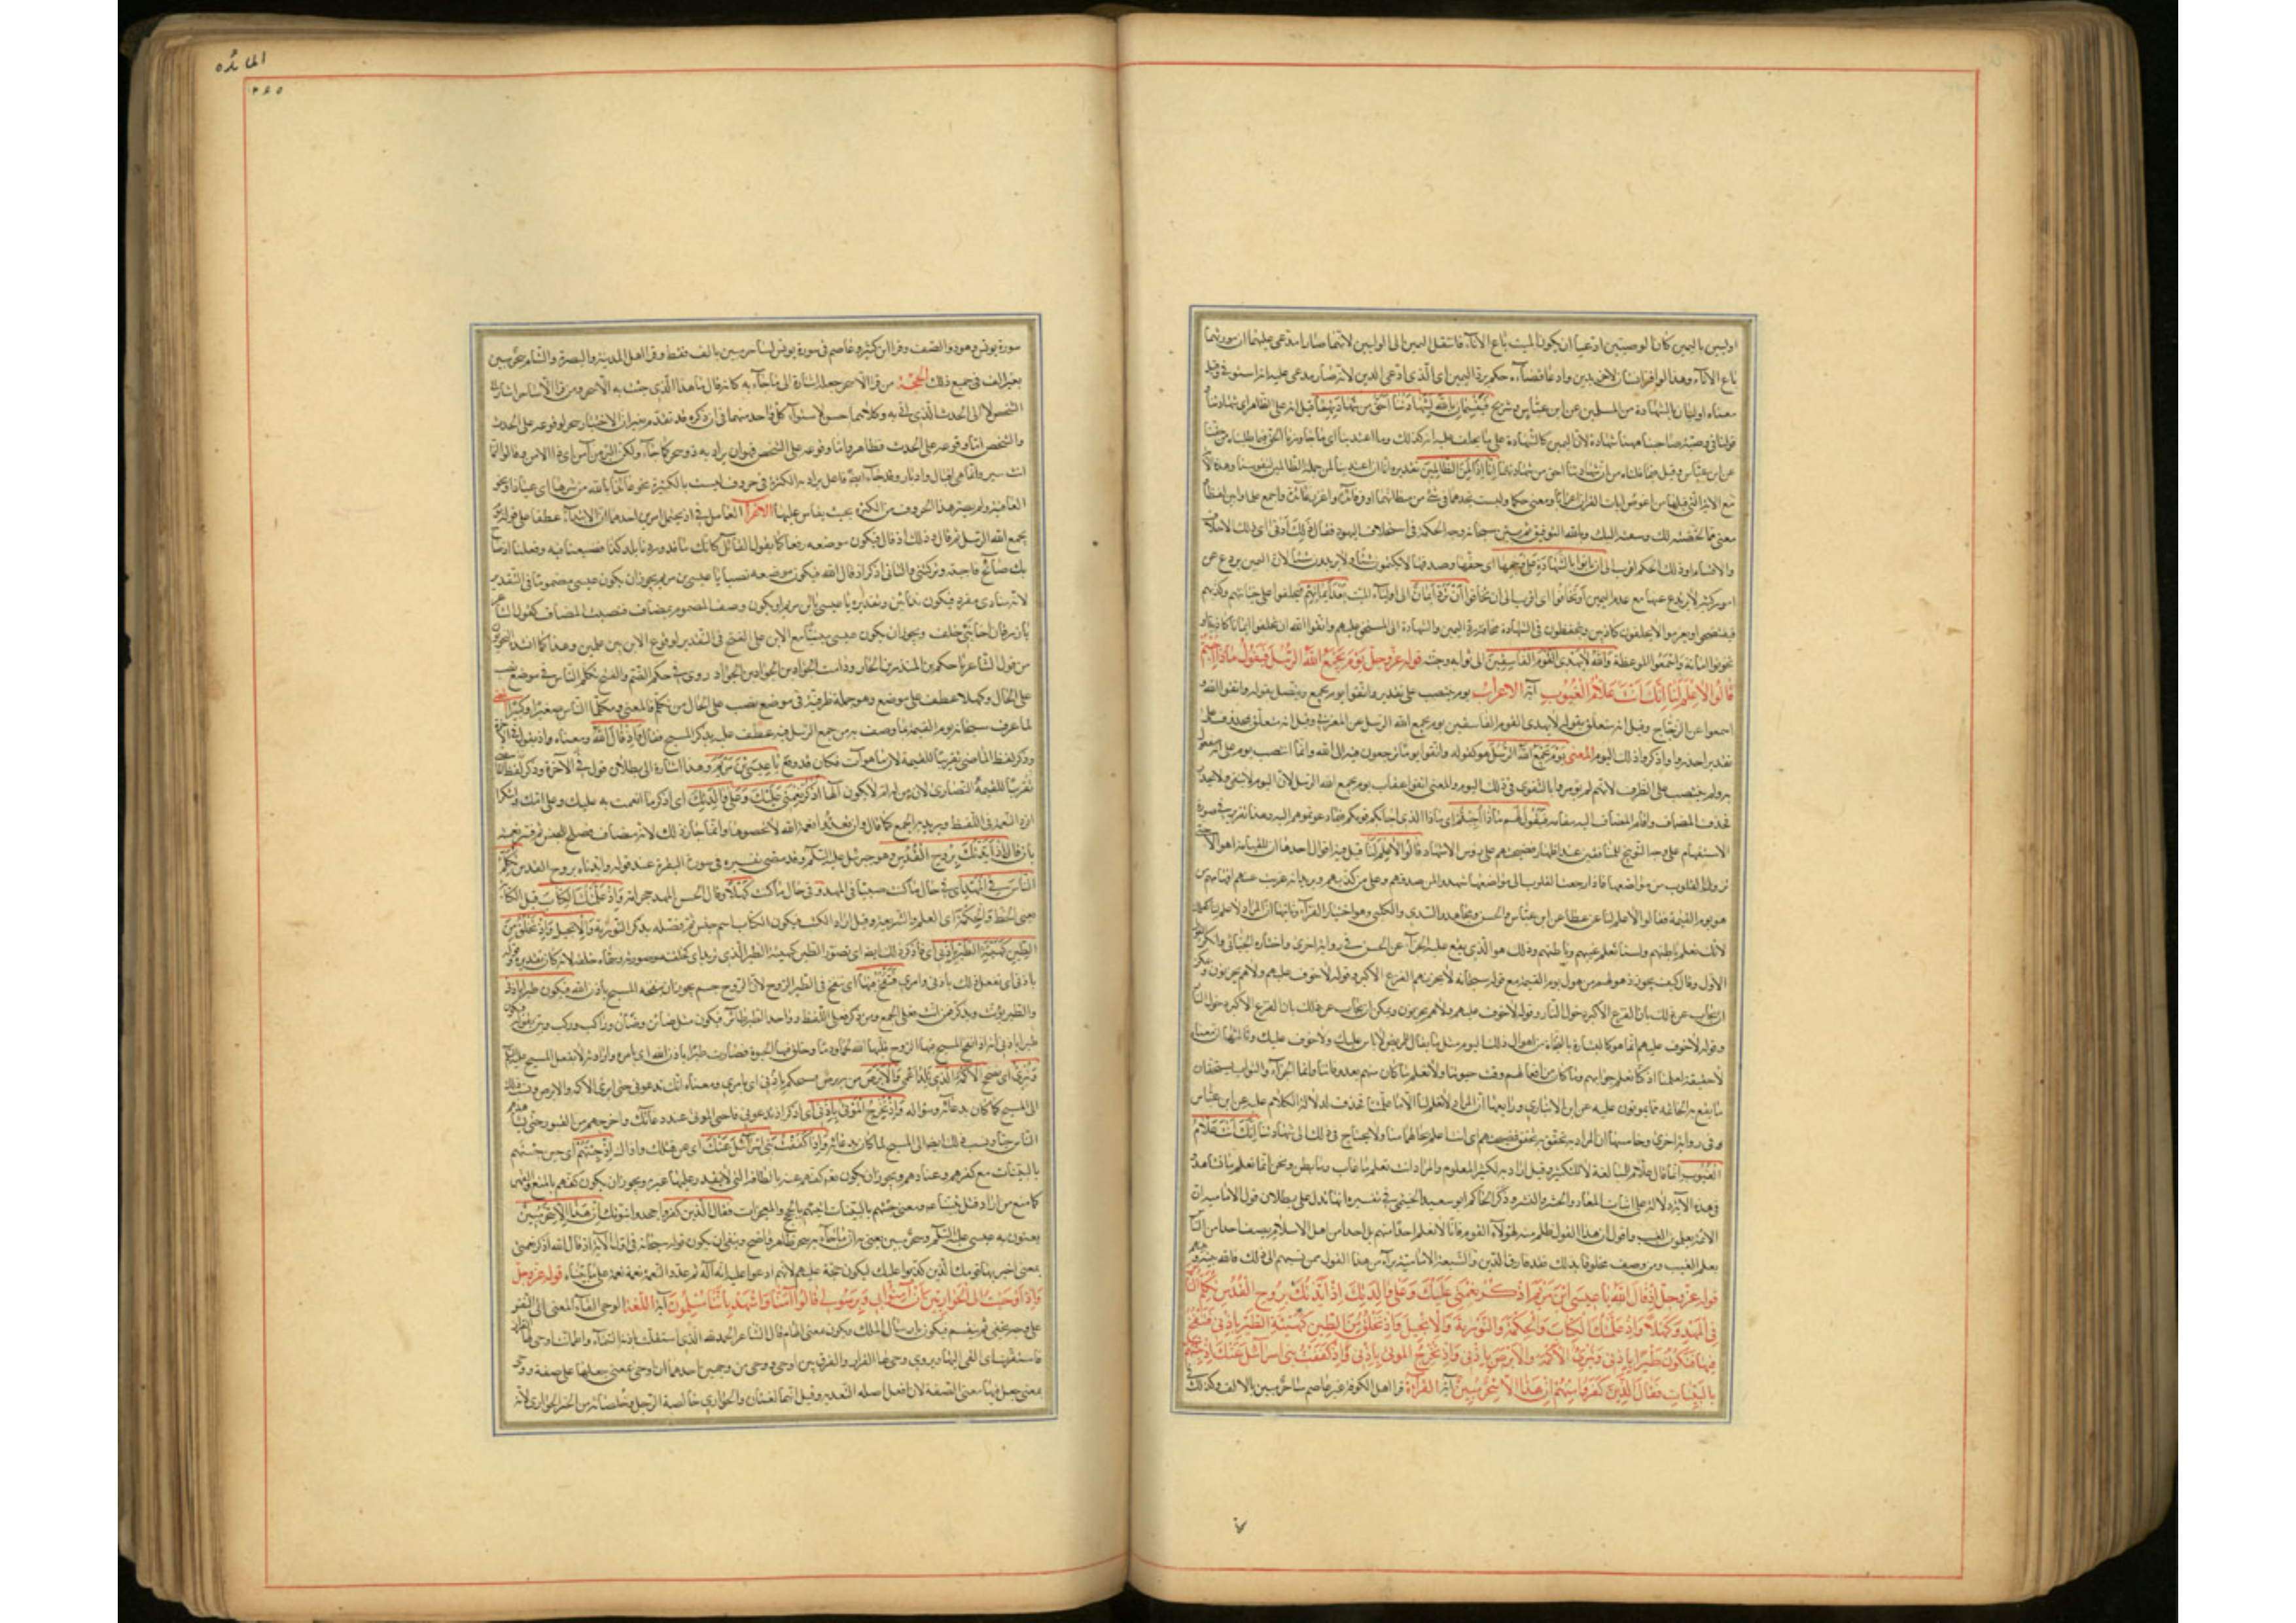 اوليين باليمين كانا لوصيتين ادعيا ان يكونا لميت باع الاناء فانتقل اليمين الى الوليين لانهما صارا مدعى عليهما ان مورثهما
باع الاناء وهذا لو اقر انسان لاخر بدين وادعا قضاءه حكم برد اليمين الى الذى ادعى الدين لانه صار مدعى عليه انه استوفى وقيل
معناه اوليان بالشهادة من المسلمين عن ابن عباس وشريح فَيُقْسِمانِ بِاللهِ لَشَهادَتُنا اَحَقُّ مِنْ شَهادَتِهِما قيل انه على الظاهر اى شهادتنا
وقولنا فى وصية صاحبنا مهنا شهادة لان اليمين كالشهادة على ما يحلف عليه انه كذلك وما اعتدينا اى ما جاوزنا الحق فيما طلبناه من حقنا
عن ابن عباس وقيل فيما قلناه من ان شهادتنا احق من شهادتهما اِنّا اِذاً لَمِنَ الظّالِمِينَ تقديره انا ان اعتدينا لمن جملة الظالمين لنفوسنا وهذه الاية
مع الاية التى قبلها من اعوص ايات القران اعرابا ومعنى وحكما ولست تجدهما فى شىء من مظانهما اوفر فائدة واغزر عائدة واجمع علما واوجز لفظا
معنى مما لخصته لك وسقته اليك وبالله التوفيق ثم بين سبحانه وجه الحكمة فى استحلاف اليهود فقال ذلِكَ اَدْنى اى ذلك الاحلاف
والاقسام او ذلك الحكم اقرب الى اَنْ يَأْتُوا بِالشَّهادَةِ عَلى وَجْهِها اى حقها وصدقها لا يكتمون شيئا ولا يزيدون شيئا لان اليمين يردع عن
امور كثيرة لا يرتدع عنها مع عدم اليمين اَوْ يَخافُوا اى اقرب الى ان يخافوا اَنْ تُرَدَّ اَيْمانٌ الى اولياء الميت بَعْدَ اَيْمانِهِمْ فيحلفوا على خيانتهم وكذبهم
فيفتضحوا ويغرموا ولا يحلفون كاذبين ويتحفظون فى الشهادة مخافة رد اليمين والشهادة الى المستحق عليهم واتقوا الله ان تحلفوا ايمانا كاذبة او
تخونوا امانة وَاسْمَعُوا الموعظة وَاللهُ لا يَهْدِى الْقَوْمَ الْفاسِقِينَ الى ثوابه وجنته قوله عز وجل يَوْمَ يَجْمَعُ اللهُ الرُّسُلَ فَيَقُولُ ماذا اُجِبْتُمْ
قالُوا لا عِلْمَ لَنا اِنَّكَ اَنْتَ عَلاّمُ الْغُيُوبِ آية الاعراب يوم ينتصب على تقدير واتقوا يوم يجمع ويتصل بقوله واتقوا الله و
اسمعوا عن الزجاج وقيل انه يتعلق بقوله لا يهدى القوم الفاسقين يوم يجمع الله الرسل عن المغربى وقيل انه يتعلق بمحذوف على
تقدير احذروا واذكروا ذلك اليوم المعنى يَوْمَ يَجْمَعُ اللهُ الرُّسُلَ هو كقوله واتقوا يوما ترجعون فيه الى الله وانما انتصب يوم على انه مفعول
به ولم ينتصب على الظرف لانهم لم يؤمروا بالتقوى فى ذلك اليوم والمعنى اتقوا عقاب يوم يجمع الله الرسل لان اليوم لا يتقى ولا يحذر
فحذف المضاف واقام المضاف اليه مقامه فَيَقُولُ لهم ماذا اُجِبْتُمْ اى ماذا الذى اجابكم قومكم فيما دعوتموهم اليه وهذا تقرير فى صورة
الاستفهام على وجه التوبيخ للمنافقين عند اظهار فضيحتهم على رؤس الاشهاد قالُوا لا عِلْمَ لَنا قيل فيه اقوال احدها ان للقيامة اهوالا حتى
تزول القلوب من مواضعها فاذا رجعت القلوب الى مواضعها شهدوا لمن صدقهم وعلى من كذبهم
هو يوم القيمة فقالوا لا علم لنا عن عطا عن ابن عباس والحسن ومجاهد والسدى والكلبى وهو اختيار الفراء وثانيها ان المراد لا علم لنا كعلمك
لانك تعلم باطنهم ولسنا نعلم غيبهم وباطنهم وذلك هو الذى يقع عليه الجزاء عن الحسن فى رواية اخرى واختاره الجبائى وانكر القول
الاول وقال كيف يجوز ذهولهم من هول يوم القيمة مع قوله سبحانه لا يحزنهم الفزع الاكبر وقوله لا خوف عليهم ولا هم يحزنون ويمكن
ان يجاب عن ذلك بان الفزع الاكبر دخول النار وقوله لا خوف عليهم ولا هم يحزنون ويمكن ان يجاب عن ذلك بان الفزع الاكبر دخول النار
وقوله لا خوف عليهم انما هو كالبشارة بالنجاة من اهوال ذلك اليوم مثل ما يقال للمريض لا باس عليك ولا خوف عليك وثالثها ان معناه
لا حقيقة لعلمنا اذ كنا نعلم جوابهم وما كان من افعالهم وقت حيوتنا ولا نعلم ما كان منهم بعد وفاتنا وانما الجزاء والثواب يستحقان
بما يقع به الخاتمة مما يموتون عليه عن ابن الانبارى ورابعها ان المراد لا علم لنا الا ما علمتنا فحذف لدلالة الكلام عليه عن ابن عباس
فى رواية اخرى وخامسها ان المراد به تحقيق فضيحتهم اى انت اعلم بحالهم منا ولا يحتاج فى ذلك الى شهادتنا اِنَّكَ اَنْتَ عَلاّمُ
الْغُيُوبِ انما قال علام للمبالغة لا للتكثير وقيل اراد به لكثير المعلوم والمراد انت تعلم ما غاب وما بطن ونحن انما نعلم ما نشاهد
فى هذه الاية دلالة على اثبات المعاد والحشر والنشر وذكر الحاكم ابو سعيد الجشمى فى تفسيره انها تدل على بطلان قول الامامية ان
الائمة يعلمون الغيب واقول ان هذا القول ظلم منه لهؤلاء القوم فانا لا نعلم احدا منهم بل احدا من اهل الاسلام يصف احدا من الناس
بعلم الغيب ومن وصف مخلوقا بذلك فقد فارق الدين والشيعة الامامية براء من هذا القول فمن نسبهم الى ذلك فالله بينه وبينهم
قوله عز وجل اِذْ قالَ اللهُ يا عِيسَى ابْنَ مَرْيَمَ اذْكُرْ نِعْمَتِى عَلَيْكَ وَعَلى والِدَتِكَ اِذْ اَيَّدْتُكَ بِرُوحِ الْقُدُسِ تُكَلِّمُ النّاسَ
فِى الْمَهْدِ وَكَهْلاً وَاِذْ عَلَّمْتُكَ الْكِتابَ وَالْحِكْمَةَ وَالتَّوْرٰيةَ وَالْاِنْجِيلَ وَاِذْ تَخْلُقُ مِنَ الطِّينِ كَهَيْئَةِ الطَّيْرِ بِاِذْنِى فَتَنْفُخُ
فِيها فَتَكُونُ طَيْراً بِاِذْنِى وَتُبْرِئُ الْاَكْمَهَ وَالْاَبْرَصَ بِاِذْنِى وَاِذْ تُخْرِجُ الْمَوْتى بِاِذْنِى وَاِذْ كَفَفْتُ بَنِى اِسْرآئِلَ عَنْكَ اِذْ جِئْتَهُمْ
بِالْبَيِّناتِ فَقالَ الَّذِينَ كَفَرُوا مِنْهُمْ اِنْ هذا اِلاّ سِحْرٌ مُبِينٌ آية القراءة قرا اهل الكوفة غير عاصم ساحر مبين بالالف وكذلك فى
المائده
٢٤٥
سورة يونس وهود والصف وقرا ابن كثير وعاصم فى سورة يونس لساحر مبين بالف فقط وقرا اهل المدينة والبصرة والشام سحر مبين
بغير الف فى جميع ذلك الحجة من قرا الا سحر جعله اشارة الى ما جاء به كانه قال ما هذا الذى جئت به الا سحر ومن قرا الا ساحر اشار الى
الشخص لا الى الحدث الذى اتى به وكلاهما حسن لاستواء كل واحد منهما فى ان ذكره قد تقدم غير ان الاختيار سحر لوقوعه على الحدث
والشخص اما وقوعه على الحدث فظاهر واما وقوعه على الشخص فهو ان يراد به ذو سحر كما جاء ولكن البر من آمن اى ذا البر وقالوا انما
انت سير وانما هى اقبال وادبار وقد جاء ايضا فاعل يراد به الكثرة فى حروف ليست بالكثيرة نحو عائذا بالله من شرها اى عياذا ونحو
العافية ولم يصر هذه الحروف من الكثرة بحيث يقاس عليها الاعراب العامل فى اذ يحتمل امرين احدهما الابتداء عطفا على قوله يوم
يجمع الله الرسل ثم قال وذلك اذ قال فيكون موضعه رفعا كما يقول القائل كانك بنا قد وردنا بلد كذا فصنعنا فيه وفعلنا اذ صاح
بك صائح فاجبته وتركتنى والثانى اذكر اذ قال الله فيكون موضعه نصبا يا عيسى بن مريم يجوز ان يكون عيسى مضموما فى التقدير
لانه منادى مفرد فيكون ندائين وتقديره يا عيسى يابن مريم او يكون وصف المضموم بمضاف فنصبت المضاف كقول الشاعر
يا زبرقان اخا بنى خلف ويجوز ان يكون عيسى مبنيا مع الابن على الفتح فى التقدير لوقوع الابن بين علمين وهذا كما انشد النحويون
من قول الشاعر يا حكم بن المنذر بن الجارود وانت الجواد بن الجواد بن الجواد روى فى حكم الضم والفتح تكلم الناس فى موضع نصب
على الحال وكهلا عطف على موضع وهو جملة ظرفية فى موضع نصب على الحال من تكلم فالمعنى ومكلما الناس صغيرا وكبيرا المعنى
لما عرف سبحانه يوم القيمة بما وصف به من جمع الرسل فيه عطف عليه بذكر المسيح فقال اِذْ قالَ اللهُ ومعناه واذ يقول فى الاخرة
وذكر لفظ الماضى تقريبا للقيمة لان ما هو آت فكان قد وقع يا عِيسَى بْنَ مَرْيَمَ وهذا اشارة الى بطلان قول
النصارى لان من له ام لا يكون الها اُذْكُرْ نِعْمَتِى عَلَيْكَ وَعَلى والِدَتِكَ اى اذكر ما انعمت به عليك وعلى امك واشكر
افرد النعمة فى اللفظ ويريد به الجمع كما قال وان تعدوا نعمة الله لا تحصوها وانما جاز ذلك لانه مضاف فصلح للجنس ثم فسر نعمته
بان قال اِذْ اَيَّدْتُكَ بِرُوحِ الْقُدُسِ وهو جبرئيل عليه السلم وقد مضى تفسيره فى سورة البقرة عند قوله وايدناه بروح القدس تُكَلِّمُ
النّاسَ فِى الْمَهْدِ اى فى حال ما كنت صبيا فى المهد وفى حال ما كنت كَهْلاً وقال الحسن المهد حجر امه وَاِذْ عَلَّمْتُكَ الْكِتابَ قيل الكتابة
يعنى الخط وَالْحِكْمَةَ اى العلم والشريعة وقيل اراد الكتب فيكون الكتاب اسم جنس ثم فصله بذكر التَّوْرٰيةَ وَالْاِنْجِيلَ وَاِذْ تَخْلُقُ مِنَ
الطِّينِ كَهَيْئَةِ الطَّيْرِ بِاِذْنِى اى واذكر ذلك ايضا اذ تصور الطين كهيئة الطير الذى تريد اى كخلقه وصورته وسماه خلقا لانه كان يقدره وقوله
باذنى اى تفعل ذلك باذنى وامرى فَتَنْفُخُ فِيها اى تنفخ فى الطير الروح لان الروح جسم يجوز ان ينفخه المسيح باذن الله فيكون طيرا باذنى
والطير يؤنث ويذكر فمن انث فعلى الجمع ومن ذكر فعلى اللفظ وواحد الطير طائر فيكون مثل ضائن وضان وراكب وركب
طيرا باذنى انه اذا نفخ المسيح فيها الروح قلبها الله لحما ودما وخلق فيها الحيوة فصارت طيرا باذن الله اى بامره وارادته لا بفعل المسيح عليه السلم
وَتُبْرِئُ اى تصح الْاَكْمَهَ الذى ولد اعمى وَالْاَبْرَصَ من به برص مستحكم بِاِذْنِى اى بامرى ومعناه انك تدعونى حتى ابرئ الاكمه والابرص ونسب ذلك
الى المسيح لما كان بدعائه وسؤاله وَاِذْ تُخْرِجُ الْمَوْتى بِاِذْنِى اى اذكر اذ تدعونى فاحيى الموتى عند دعائك واخرجهم من القبور حتى يشاهدهم
الناس احياء ونسب ذلك ايضا الى المسيح لما كان بدعائه وَاِذْ كَفَفْتُ بَنِى اِسْرآئِلَ عَنْكَ اى عن قتلك واذاك اِذْ جِئْتَهُمْ اى حين جئتهم
بالبينات مع كفرهم وعنادهم ويجوز ان يكون تعم كفهم عنه بالطافه التى لا يقدر عليها غيره ويجوز ان يكون كفهم بالمنع والقهر
كما منع من اراد قتل نبينا ص ومعنى جئتهم بالبينات اتيتهم بالحجج والمعجزات فَقالَ الَّذِينَ كَفَرُوا جحدوا نبوتك اِنْ هذا اِلاّ سِحْرٌ مُبِينٌ
يعنون به عيسى عليه السلم وسحر مبين يعنى به ان ما جاء به سحر ظاهر واضح وينبغى ان يكون قوله سبحانه فى اول الاية اذ قال الله اذكر نعمتى
بمعنى اخبر بها قومك الذين كذبوا عليك ليكون حجة عليهم لانهم ادعوا عليه انه اله ثم عدد النعمة نعمة نعمة على ما بيناه قوله عز وجل
وَاِذْ اَوْحَيْتُ اِلَى الْحَوارِيِّينَ اَنْ آمِنُوا بِى وَبِرَسُولِى قالُوا آمَنّا وَاشْهَدْ بِاَنَّنا مُسْلِمُونَ آية اللغة الوحى القاء المعنى الى النفس
على وجه يخفى ثم ينقسم فيكون بارسال الملك ويكون بمعنى الالهام قال الشاعر الحمد لله الذى استقلت باذنه السماء واطمانت اوحى لها القرار
فاستقرت اى القى اليها ويروى وحى لها القرار والفرق بين اوحى ووحى من وجهين احدهما ان اوحى بمعنى جعلها على صفة ووحى
بمعنى جعل فيها معنى الصفة لان افعل اصله التعدية وقيل انهما لغتان والحوارى خالصة الرجل وخلصاؤه من الخبز الحوارى لانه